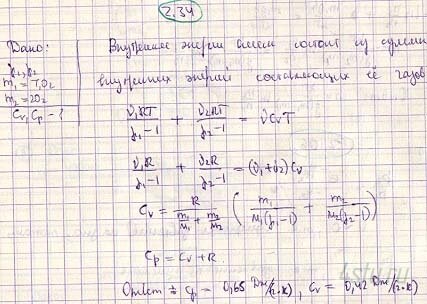 2.34
Дано: Внутренняя энергия смеси состоит из суммы
γ₁, γ₂ внутренних энергий составляющих её газов
m₁ = 7,0г
m₂ = 20г
Cv, Cp - ?
ν₁RT/(γ₁-1) + ν₂RT/(γ₂-1) = νCvT
ν₁R/(γ₁-1) + ν₂R/(γ₂-1) = (ν₁+ν₂)Cv
Cv = R/(m₁/M₁ + m₂/M₂) (m₁/(M₁(γ₁-1)) + m₂/(M₂(γ₂-1)))
Cp = Cv + R
Ответ: Cp = 0,65 Дж/(г·К), Cv = 0,42 Дж/(г·К)